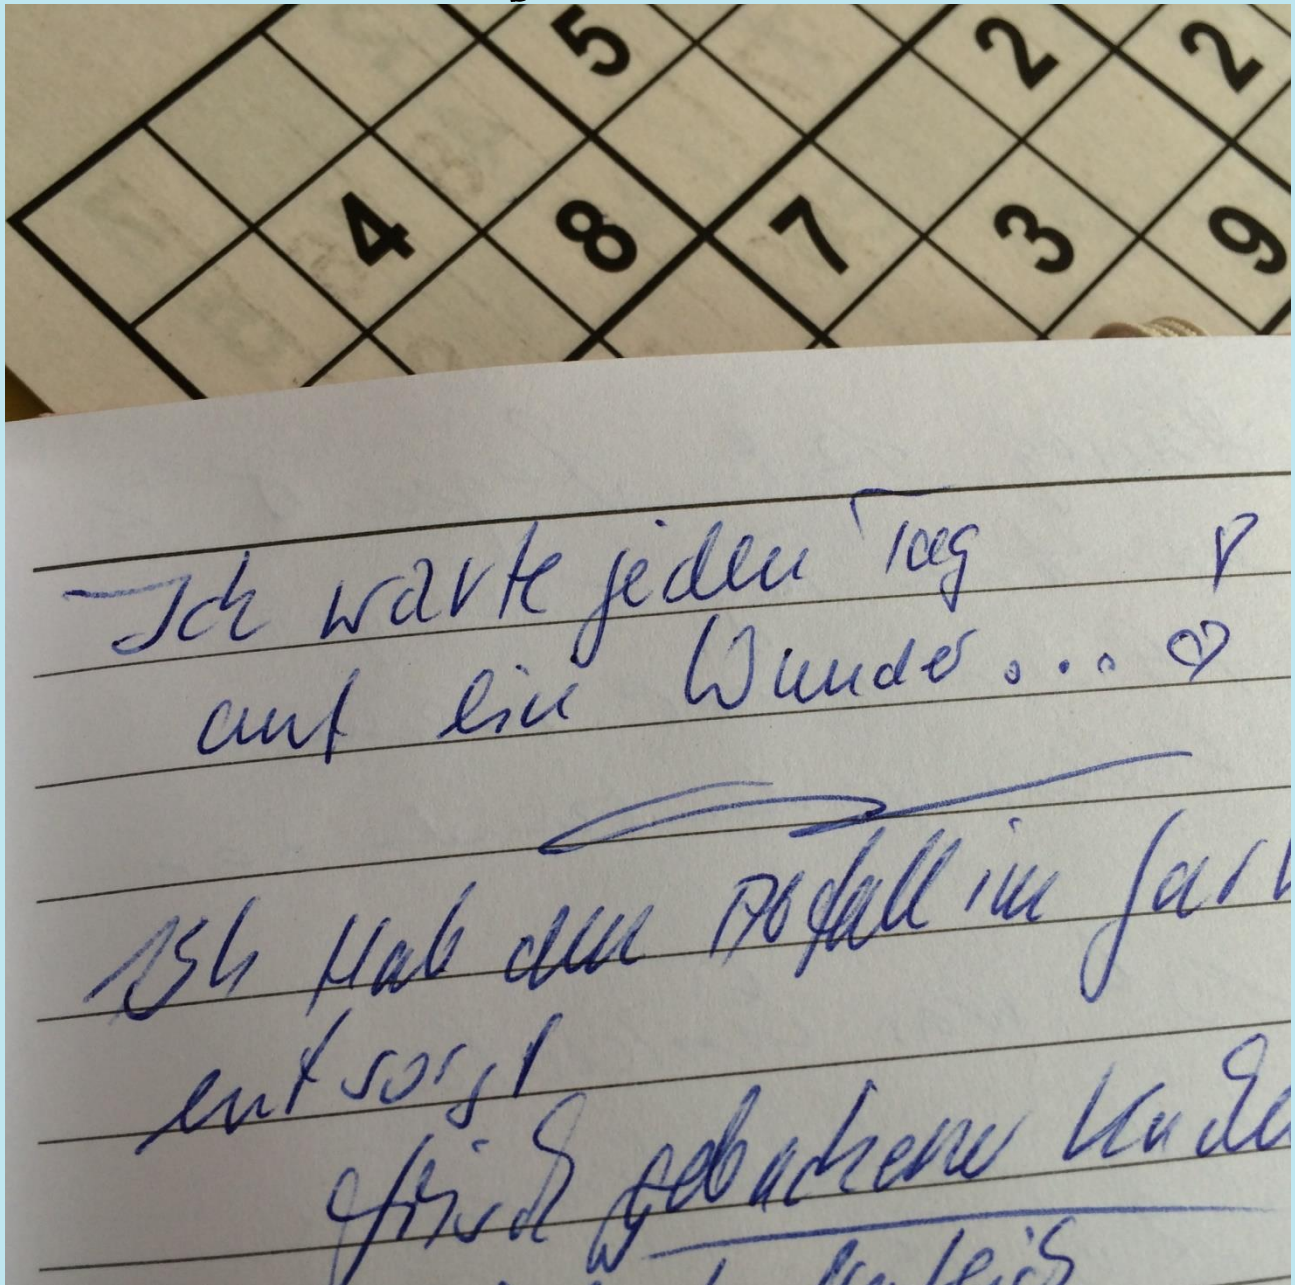 5 2 2
4 8 7 3 9
Ich warte jeden Tag
auf ein Wunder...♡
Ich Hab den Abfall im Gar
entsorgt
frisch gebackener Kuche